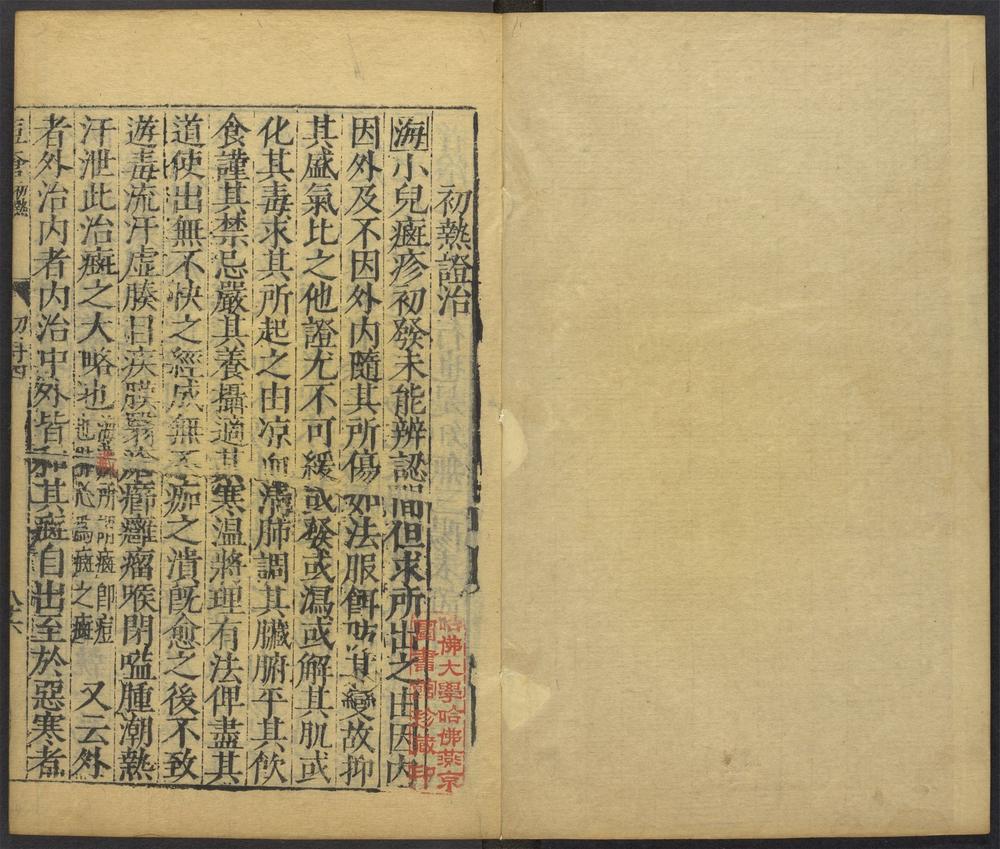 初熱證治
海小兒癍疹初發未能辨認間但求所出之由因內
因外及不因外內隨其所傷如法服餌防其變故抑
其盛氣比之他證尤不可緩或發或瀉或解其肌或
化其毒求其所起之由凉血清肺調其臟腑平其飲
食謹其禁忌嚴其養攝適其寒温將理有法俾盡其
道使出無不快之經成無不痂之潰既愈之後不致
遊毒流汗虛腠目疾膜翳瘡癤癰瘤喉閉嗌腫潮熱
汗泄此治癍之大略也
海藏所謂癍即痘
也非必為癍之癍
又云外
者外治內者內治中外皆和其癍自出至於惡寒者
初熱
初卅四
八六
哈佛大學哈佛燕京
圖書館珍藏印